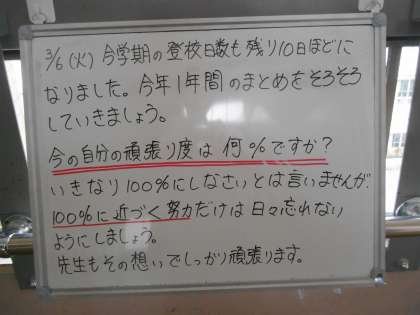 3/6(火) 今学期の登校日数も残り10日ほどに
なりました。今年1年間のまとめをそろそろ
していきましょう。
今の自分の頑張り度は何%ですか?
いきなり100%にしなさいとは言いませんが、
100%に近づく努力だけは日々忘れない
ようにしましょう。
先生もその想いでしっかり頑張ります。